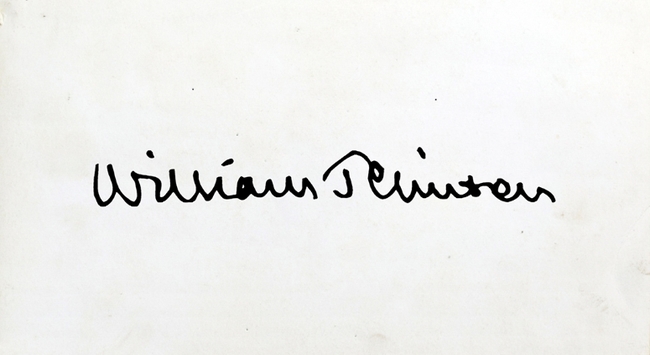 William J Clinton